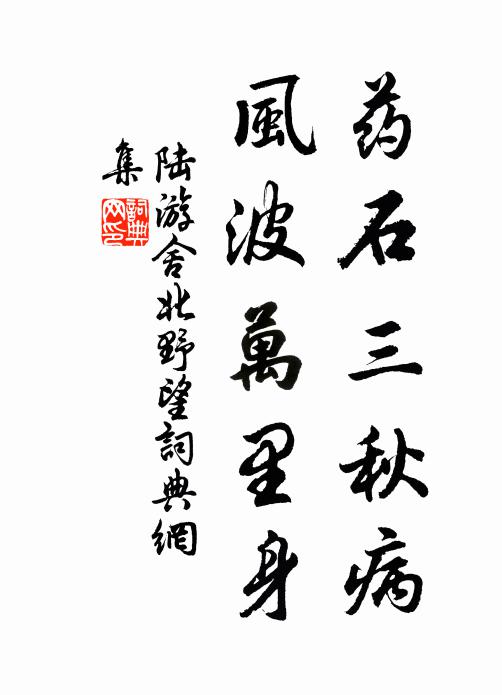 药石三秋病
風波萬里身
陆游舍北野望詞典網
集
詞典
网印